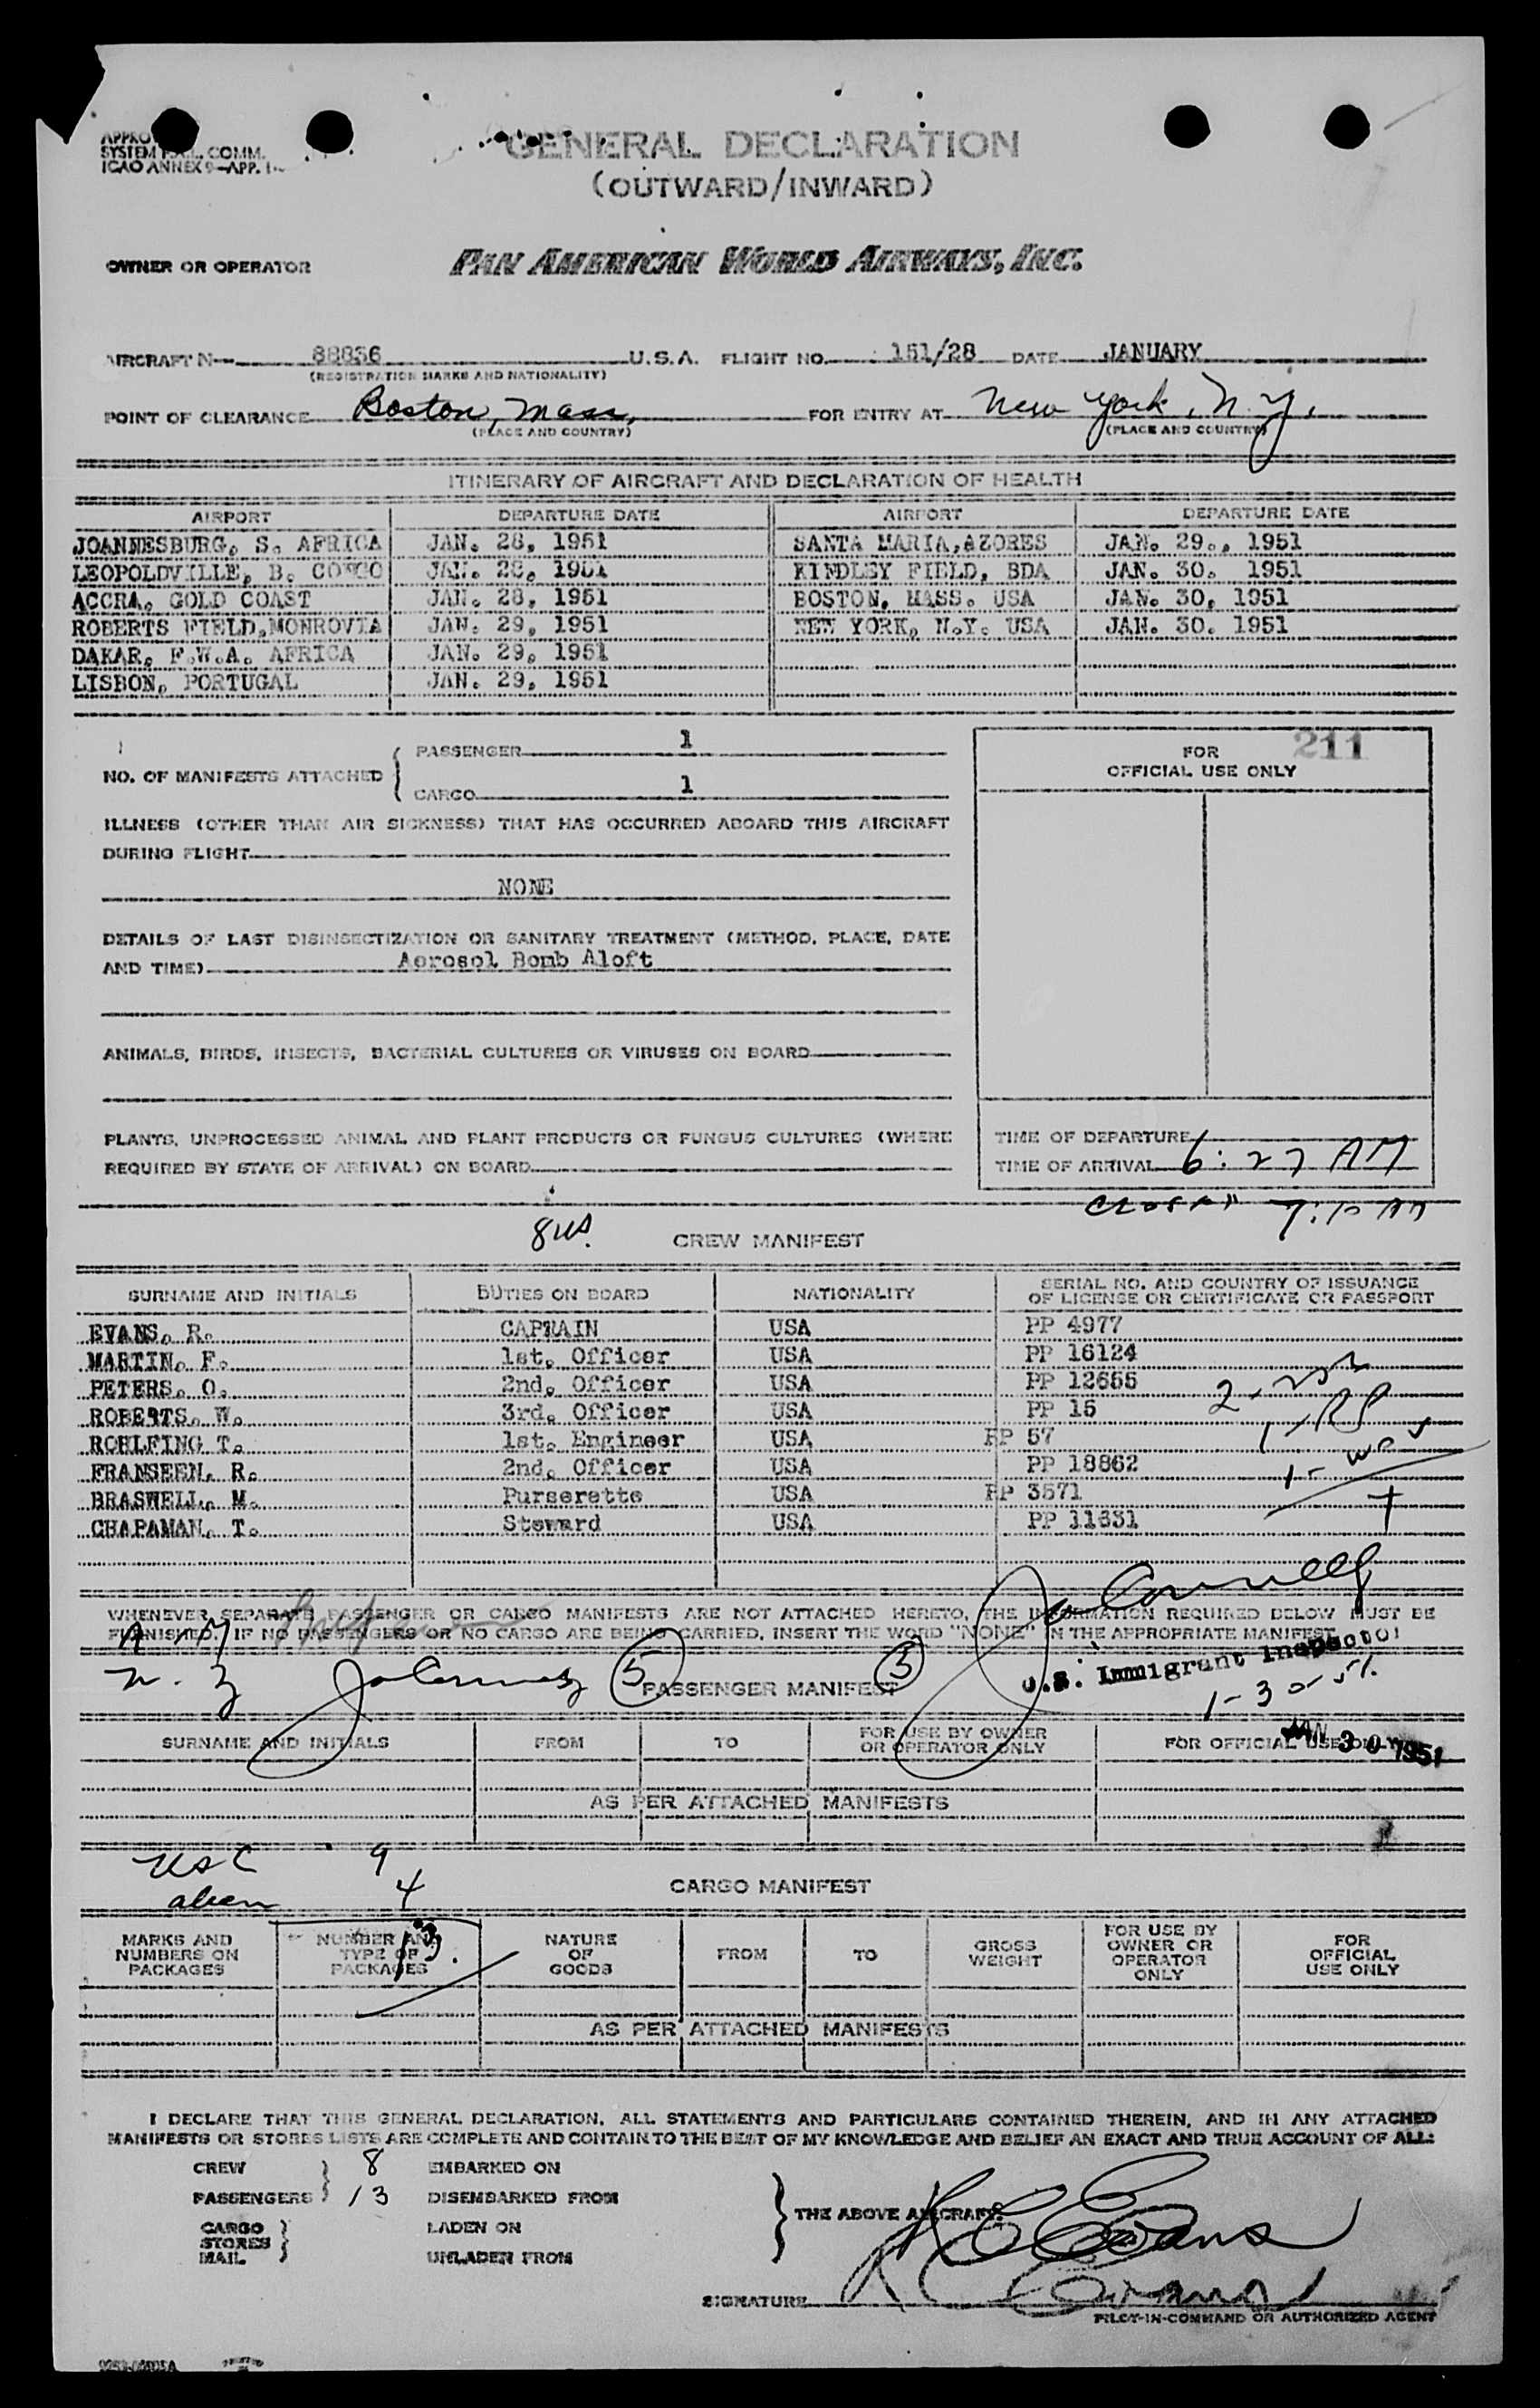 GENERAL DECLARATION
(OUTWARD/INWARD)
SYSTEM COMM.
ICAO ANNEX 9—APP. 1
OWNER OR OPERATOR PAN AMERICAN WORLD AIRWAYS, INC.
AIRCRAFT N— 88836 U.S.A. FLIGHT NO. 151/28 DATE JANUARY
(REGISTRATION MARKS AND NATIONALITY)
POINT OF CLEARANCE Boston, Mass, FOR ENTRY AT New York, N.Y.
(PLACE AND COUNTRY) (PLACE AND COUNTRY)
ITINERARY OF AIRCRAFT AND DECLARATION OF HEALTH
AIRPORT DEPARTURE DATE AIRPORT DEPARTURE DATE
JOANNESBURG, S. AFRICA JAN. 28, 1951 SANTA MARIA,AZORES JAN. 29., 1951
LEOPOLDVILLE, B. CONGO JAN. 28, 1951 KINDLEY FIELD, BDA JAN. 30. 1951
ACCRA, GOLD COAST JAN. 28, 1951 BOSTON, MASS. USA JAN. 30, 1951
ROBERTS FIELD,MONROVIA JAN. 29, 1951 NEW YORK, N.Y. USA JAN. 30. 1951
DAKAR, F.W.A. AFRICA JAN. 29, 1951
LISBON, PORTUGAL JAN. 29, 1951
NO. OF MANIFESTS ATTACHED
PASSENGER 1
CARGO 1
FOR 211
OFFICIAL USE ONLY
ILLNESS (OTHER THAN AIR SICKNESS) THAT HAS OCCURRED ABOARD THIS AIRCRAFT
DURING FLIGHT
NONE
DETAILS OF LAST DISINSECTIZATION OR SANITARY TREATMENT (METHOD, PLACE, DATE
AND TIME) Aerosol Bomb Aloft
ANIMALS, BIRDS, INSECTS, BACTERIAL CULTURES OR VIRUSES ON BOARD
PLANTS, UNPROCESSED ANIMAL AND PLANT PRODUCTS OR FUNGUS CULTURES (WHERE
REQUIRED BY STATE OF ARRIVAL) ON BOARD
TIME OF DEPARTURE
TIME OF ARRIVAL 6:27 AM
CREW MANIFEST
SURNAME AND INITIALS DUTIES ON BOARD NATIONALITY SERIAL NO. AND COUNTRY OF ISSUANCE
OF LICENSE OR CERTIFICATE OR PASSPORT
EVANS, R. CAPTAIN USA PP 4977
MARTIN, F. 1st. Officer USA PP 16124
PETERS, O. 2nd. Officer USA PP 12655
ROBERTS, W. 3rd. Officer USA PP 15
ROHLFING T. 1st. Engineer USA PP 57
FRANSEEN, R. 2nd. Officer USA PP 18862
BRASWELL, M. Purserette USA PP 3571
CHAPAMAN, T. Steward USA PP 11631
WHENEVER SEPARATE PASSENGER OR CARGO MANIFESTS ARE NOT ATTACHED HERETO, THE INFORMATION REQUIRED BELOW MUST BE
FURNISHED. IF NO PASSENGERS OR NO CARGO ARE BEING CARRIED, INSERT THE WORD "NONE" IN THE APPROPRIATE MANIFEST
U.S. Immigrant Inspector
1-30-51
5 PASSENGER MANIFEST 3
SURNAME AND INITIALS FROM TO FOR USE BY OWNER
OR OPERATOR ONLY FOR OFFICIAL USE ONLY
JAN 30 1951
AS PER ATTACHED MANIFESTS
USC 9
alien 4
13
CARGO MANIFEST
MARKS AND
NUMBERS ON
PACKAGES
NUMBER AND
TYPE OF
PACKAGES
NATURE
OF
GOODS
FROM
TO
GROSS
WEIGHT
FOR USE BY
OWNER OR
OPERATOR
ONLY
FOR
OFFICIAL
USE ONLY
AS PER ATTACHED MANIFESTS
I DECLARE THAT THIS GENERAL DECLARATION, ALL STATEMENTS AND PARTICULARS CONTAINED THEREIN, AND IN ANY ATTACHED
MANIFESTS OR STORES LISTS ARE COMPLETE AND CONTAIN TO THE BEST OF MY KNOWLEDGE AND BELIEF AN EXACT AND TRUE ACCOUNT OF ALL:
CREW 8 EMBARKED ON
PASSENGERS 13 DISEMBARKED FROM
CARGO LADEN ON
STORES
MAIL UNLADEN FROM
THE ABOVE AIRCRAFT.
R C Evans
SIGNATURE
PILOT-IN-COMMAND OR AUTHORIZED AGENT